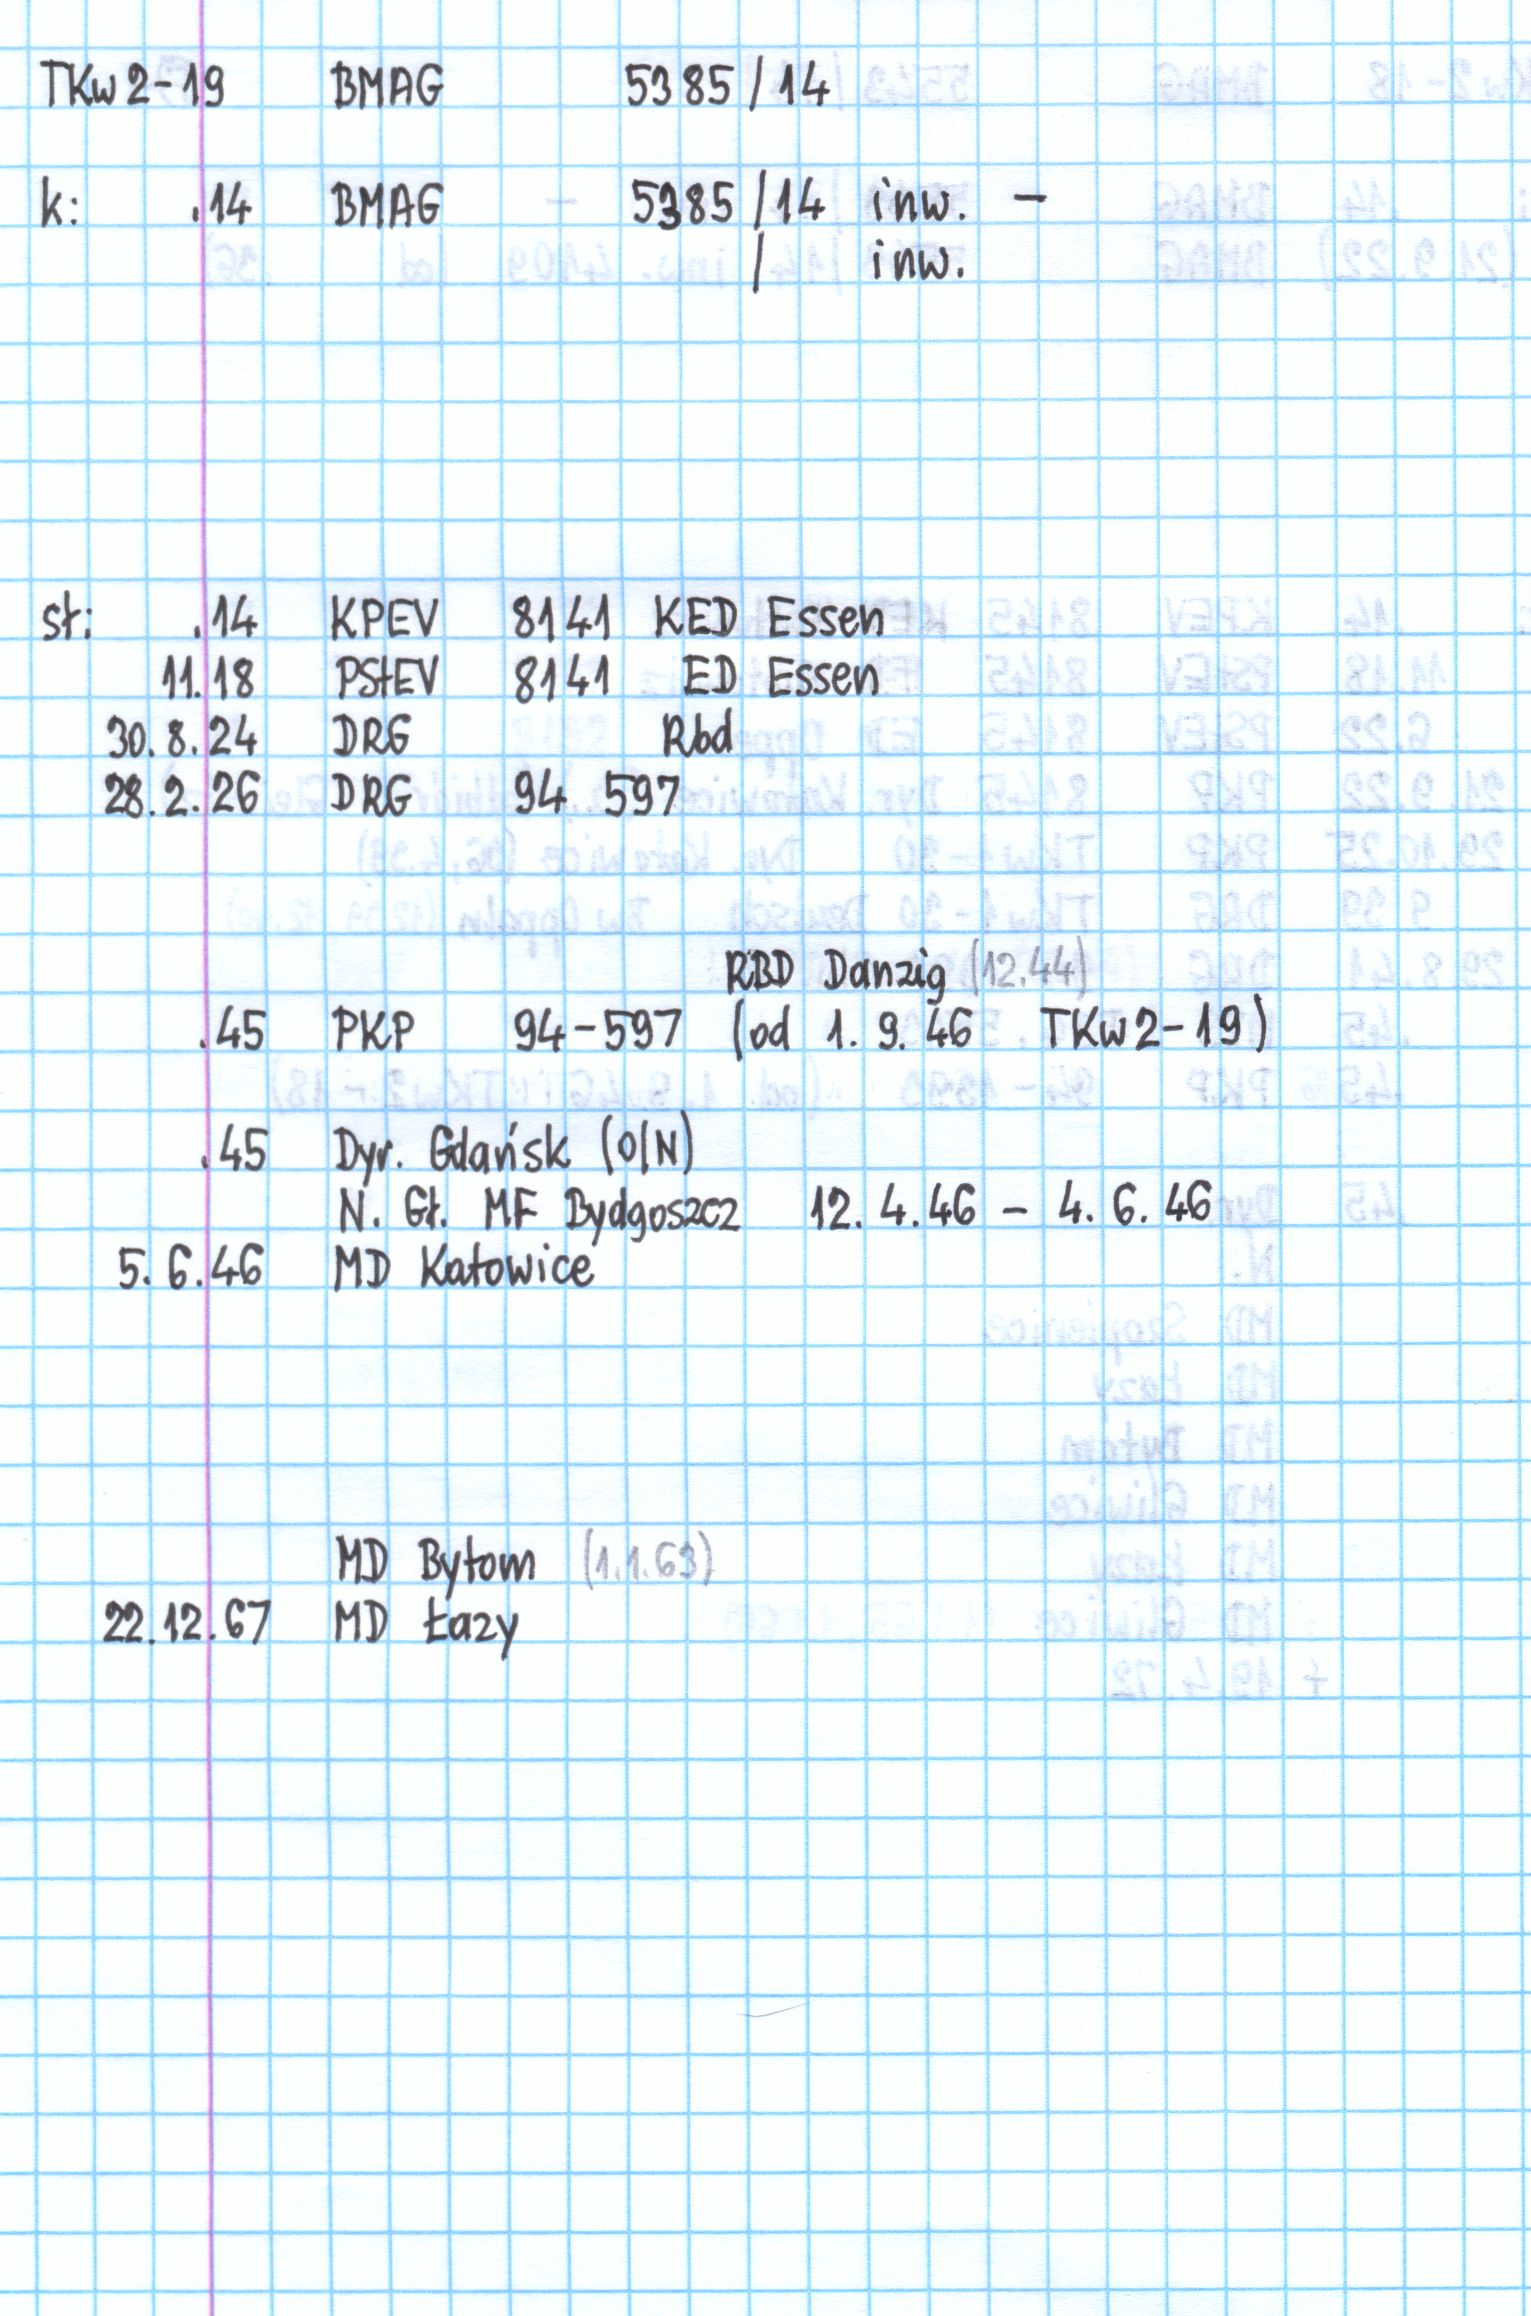 TKw2-19 BMAG 5385/14
k: .14 BMAG - 5385/14 inw. -
/ inw.
st: .14 KPEV 8141 KED Essen
11.18 PStEV 8141 ED Essen
30.8.24 DRG Rbd
28.2.26 DRG 94 597
RBD Danzig (12.44)
.45 PKP 94-597 (od 1.9.46 TKw2-19)
.45 Dyr. Gdańsk (O/N)
N. Gł. MF Bydgoszcz 12.4.46 - 4.6.46
5.6.46 MD Katowice
MD Bytom (1.1.63)
22.12.67 MD Łazy